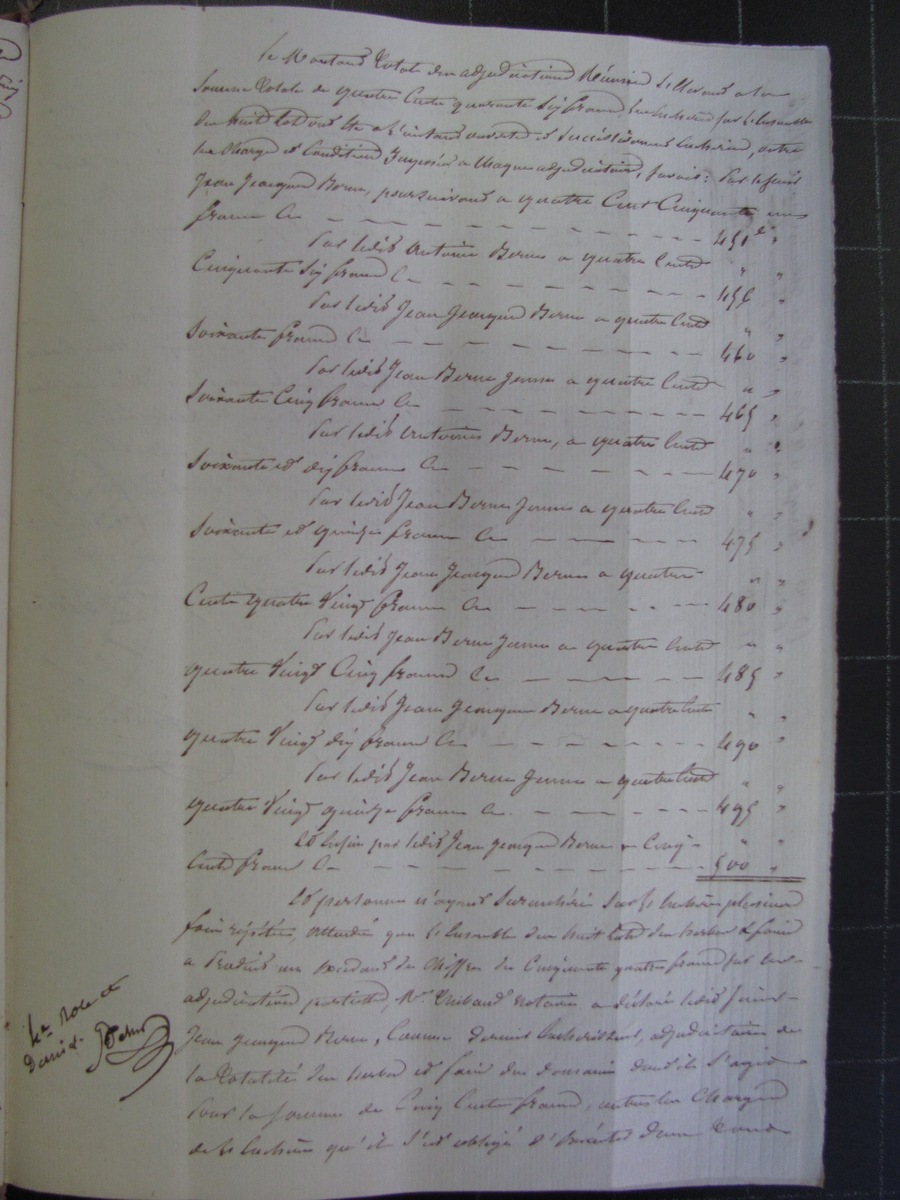 Le Montant total des adjudications Réunies S'Elevant a la
Somme totale de quatre Cents quarante Six francs, les Enchères sur l'Ensemble
des huit Lots ont été a l'instant ouvertes et Successivement Enchéries, outre
les Charges et Conditions Imposées a Chaque adjudicataire, Savoir: Par le sieur
Jean Jacques Berne, poursuivant a quatre Cent Cinquante un
francs Ci 451 f "
Par ledit Antoine Berne a quatre Cents " "
Cinquante Six francs Ci 456 "
Par ledit Jean Jacques Berne a quatre Cents " "
Soixante francs Ci 460 "
Par ledit Jean Berne Jeune a quatre Cents " "
Soixante Cinq francs Ci 465 "
Par ledit Antoine Berne, a quatre Cents " "
Soixante et dix francs Ci 470 "
Par ledit Jean Berne Jeune a quatre Cents " "
Soixante et quinze francs Ci 475 "
Par ledit Jean Jacques Berne a quatre " "
Cents quatre Vingt francs Ci 480 "
Par ledit Jean Berne Jeune a quatre Cents " "
quatre Vingt Cinq francs Ci 485 "
Par ledit Jean Jacques Berne a quatre Cents " "
quatre Vingt dix francs Ci 490 "
Par ledit Jean Berne Jeune a quatre Cents " "
quatre Vingt quinze francs Ci 495 "
Et Enfin par ledit Jean Jacques Berne a Cinq " "
Cents francs Ci 500 "
Et personne n'ayant Surenchéri Sur l'Enchère plusieurs
fois répétée, attendu que l'Ensemble des huit Lots des herbes & foins
a Produit un Excédant de Chiffre de Cinquante quatre francs sur les
adjudications partielles, Me Thibaud Notaire a déclaré ledit sieur
Jean Jacques Berne, Comme dernier Enchérisseur, adjudicataire de
la totalité des herbes et foins du domaine dont il S'agit
Pour la Somme de Cinq Cents francs, outre les Charges
de l'Enchère qu'il S'est obligé d'Exécuter dans tout